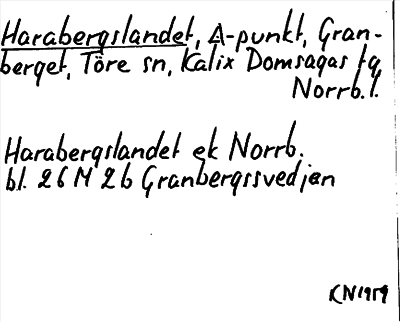 Harabergslandet, Δ-punkt, Gran-
berget, Töre sn, Kalix Domsagas tg
Norrb.l.
Harabergslandet ek Norrb.
bl. 26 M 2b Granbergssvedjan
KN 1959